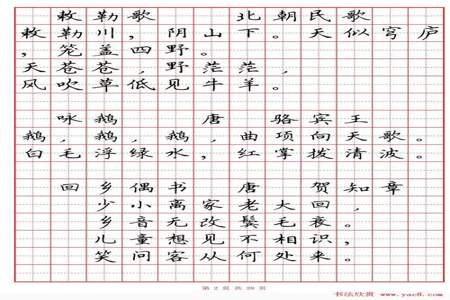 敕勒歌 北朝民歌
敕勒川，阴山下。天似穹庐
，笼盖四野。
天苍苍，野茫茫，
风吹草低见牛羊。
咏鹅 唐 骆宾王
鹅，鹅，鹅，曲项向天歌。
白毛浮绿水，红掌拨清波。
回乡偶书 唐 贺知章
少小离家老大回，
乡音无改鬓毛衰。
儿童想见不相识，
笑问客从何处来。
第 2 页 共 29 页
书法欣赏 www.yac8.com